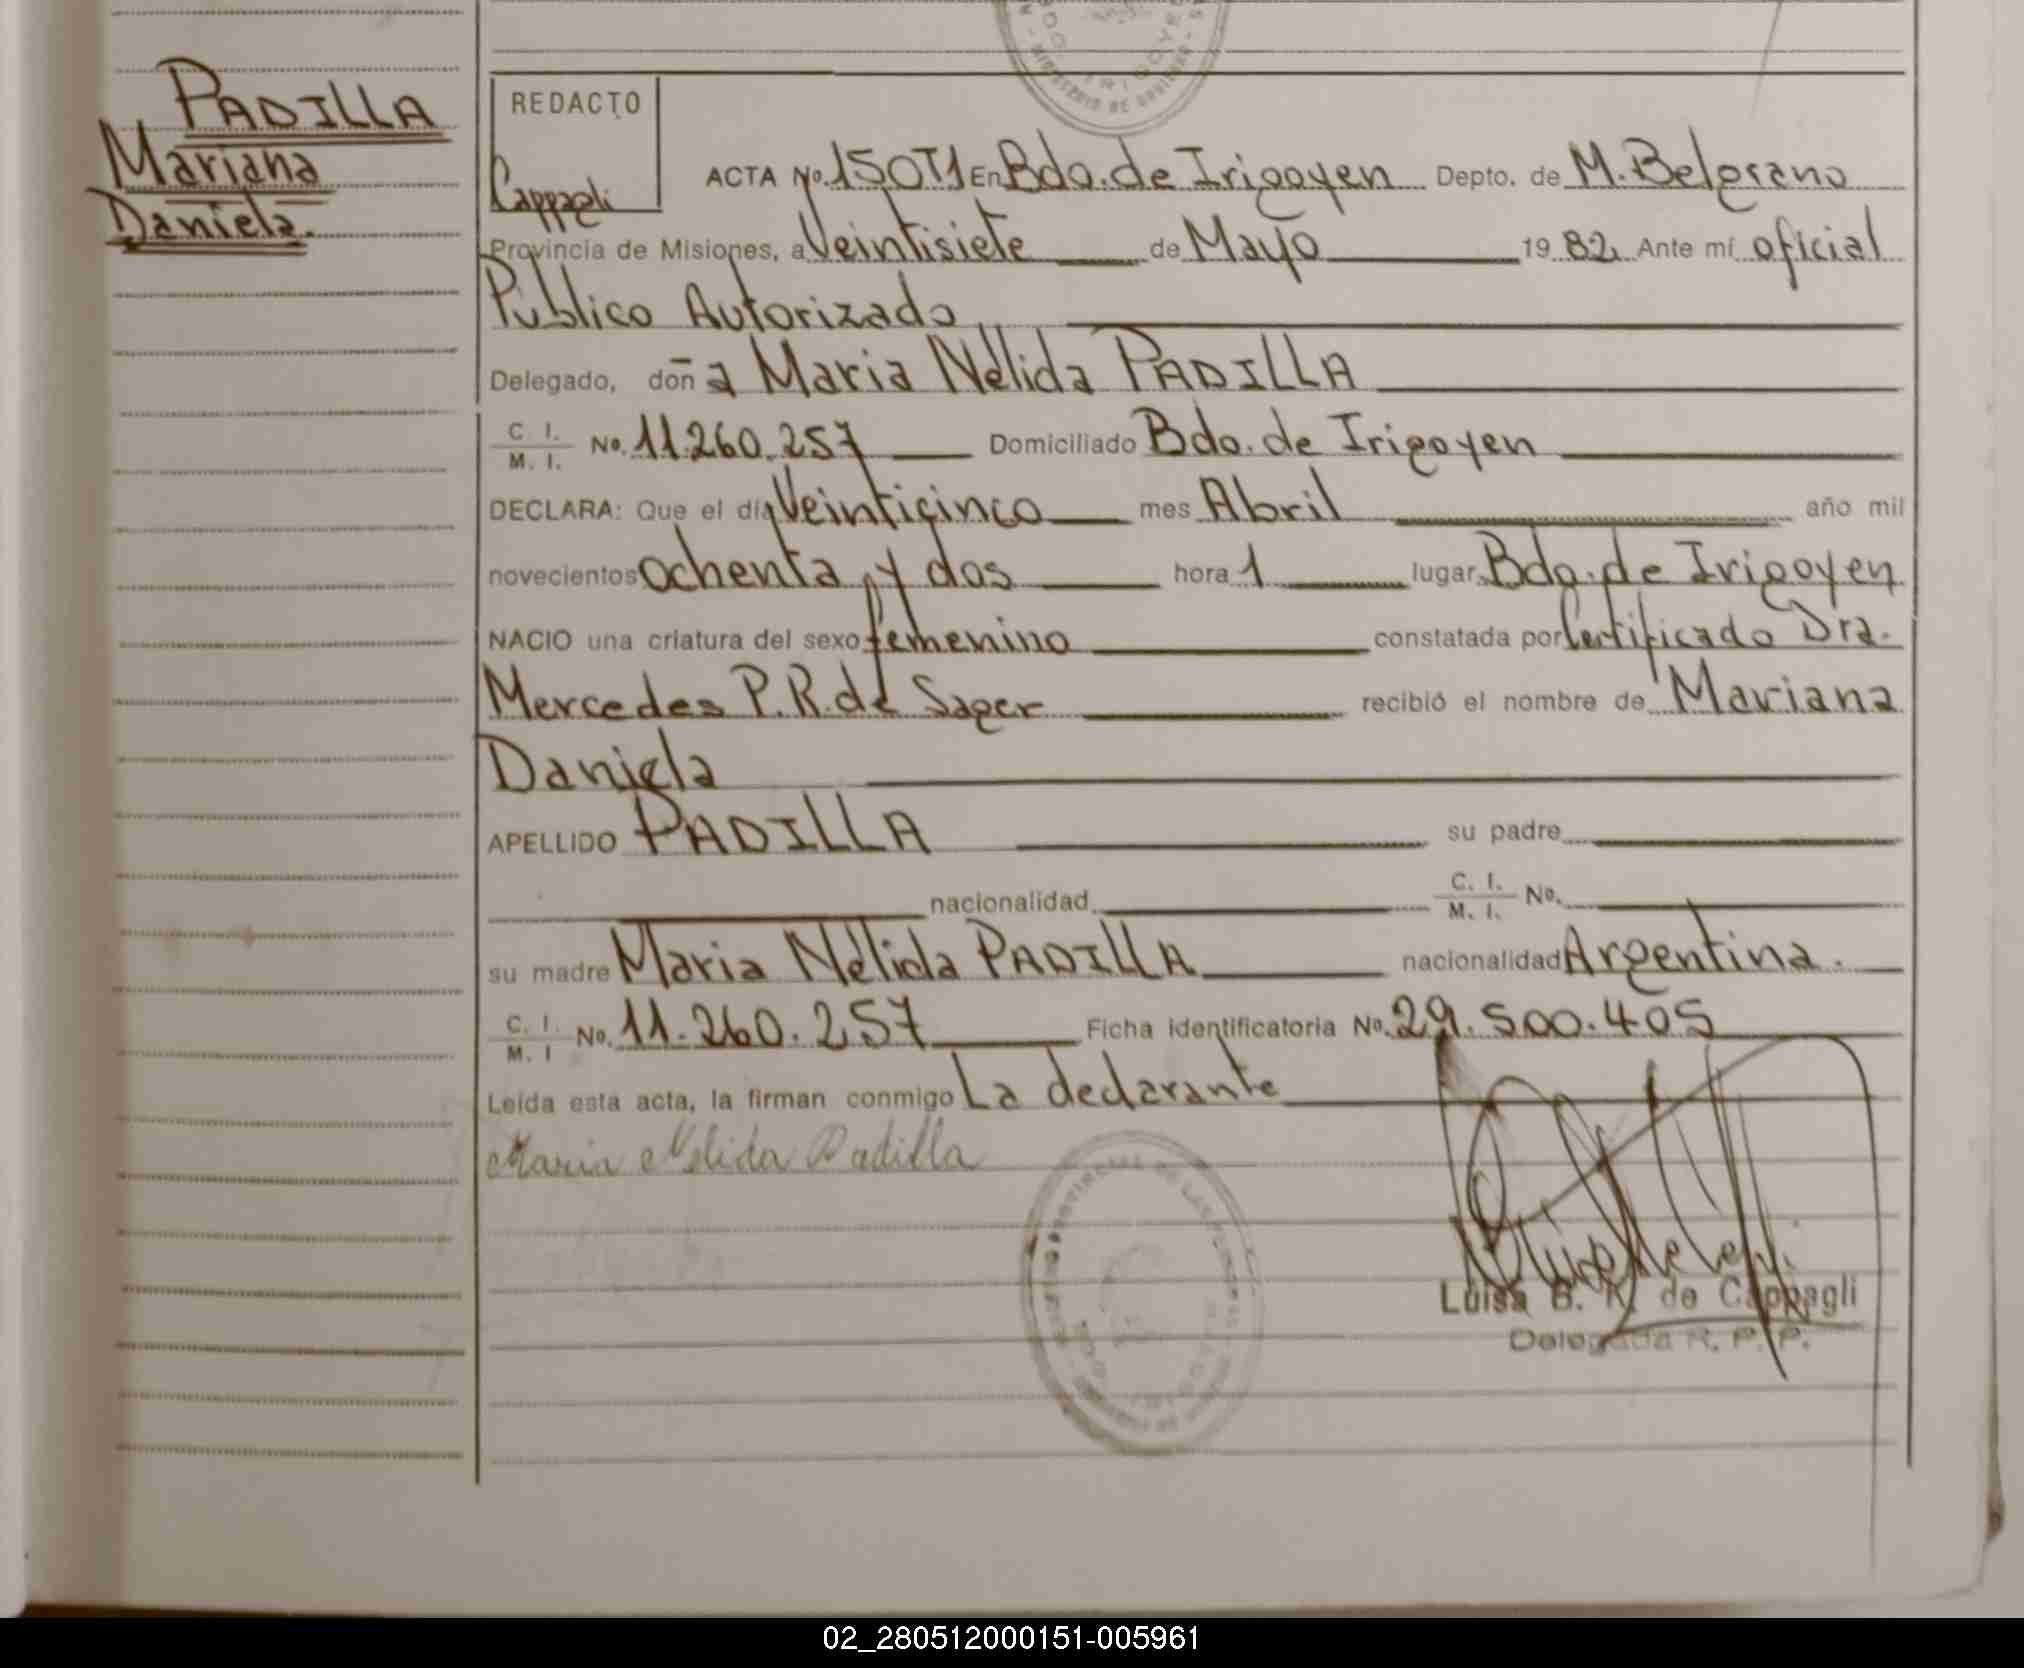 PADILLA
Mariana
Daniela.
REDACTO
Cappagli
ACTA No. 150T1 En Bdo. de Irigoyen Depto. de M. Belgrano
Provincia de Misiones, a Veintisiete de Mayo 1982 Ante mí oficial
Público Autorizado
Delegado, doña Maria Nélida PADILLA
C. I. / M. I. No. 11.260.257 Domiciliado Bdo. de Irigoyen
DECLARA: Que el día Veinticinco mes Abril año mil
novecientos ochenta y dos hora 1 lugar Bdo. de Irigoyen
NACIO una criatura del sexo femenino constatada por Certificado Dra.
Mercedes P. R. de Sager recibió el nombre de Mariana
Daniela
APELLIDO PADILLA su padre
nacionalidad C. I. / M. I. No.
su madre Maria Nélida PADILLA nacionalidad Argentina.
C. I. / M. I No. 11.260.257 Ficha identificatoria No. 29.500.405
Leída esta acta, la firman conmigo La declarante
Maria Nelida Padilla
Luisa B. K. de Cappagli
Delegada R. P. P.
02_280512000151-005961